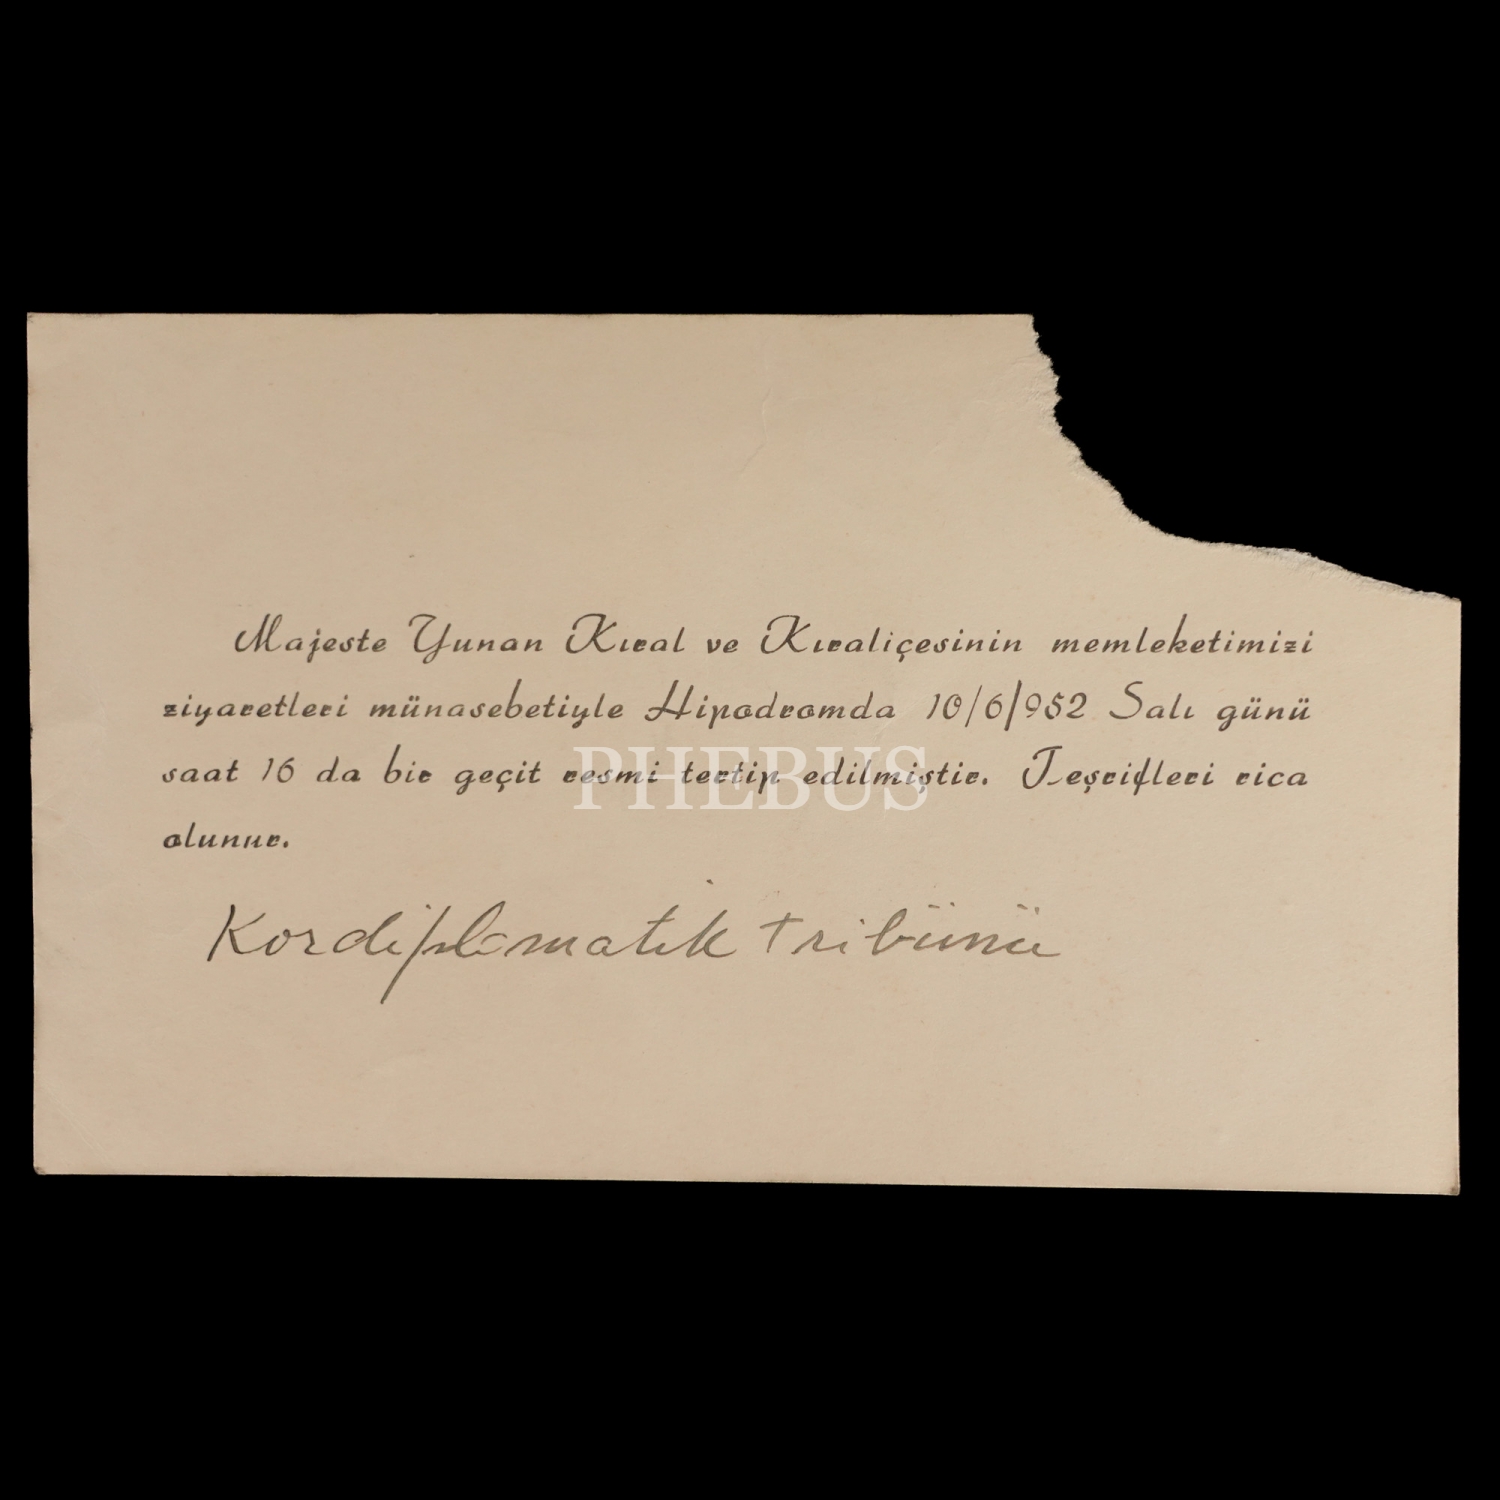 Majeste Yunan Kıral ve Kıraliçesinin memleketimizi
ziyaretleri münasebetiyle Hipodromda 10/6/952 Salı günü
saat 16 da bir geçit resmi tertip edilmiştir. Teşrifleri rica
olunur.
Kordiplomatik tribünü
PHEBUS